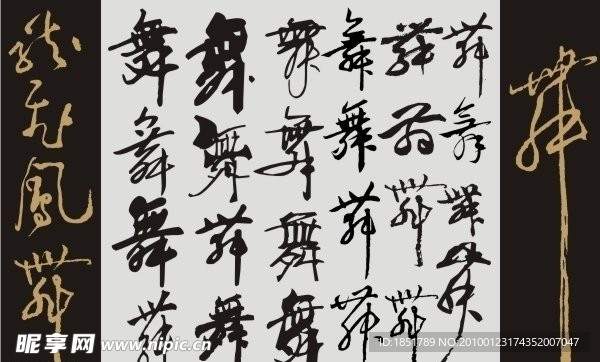 龍飛鳳舞
舞 舞 舞 舞 舞 舞
舞 舞 舞 舞 舞 舞
舞 舞 舞 舞 舞 舞
舞 舞 舞 舞 舞 舞
舞
昵享网
www.nipic.cn
ID:1851789 NO.20100123174352007047